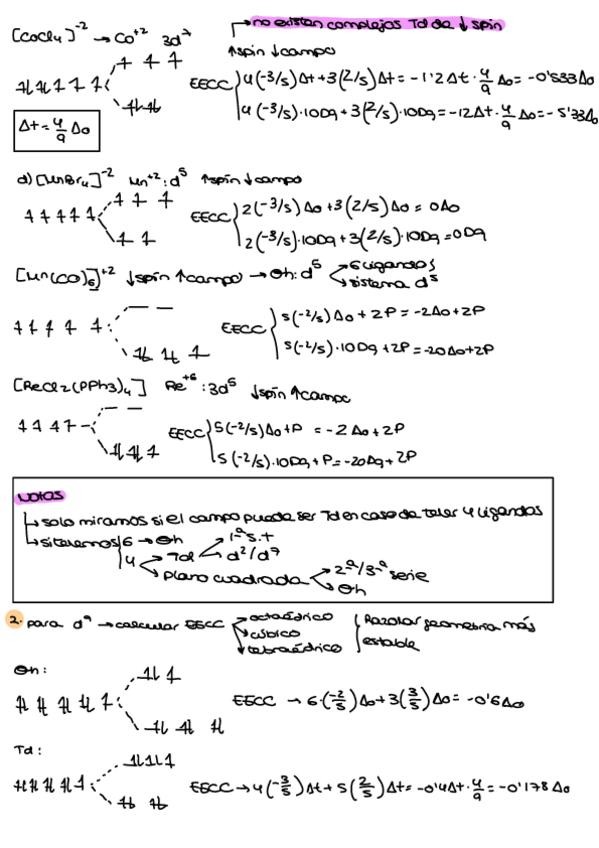 → no existen complejos Td de ↓ spin
[CoCl4]⁻² → Co⁺² 3d⁷
↑spin ↓campo
EECC 4(-3/5)Δt + 3(2/5)Δt = -1'2 Δt · 4/9 Δo = -0'533Δo
4(-3/5)·10Dq + 3(2/5)·10Dq = -12Δt · 4/9 Δo = -5'33Δo
Δt = 4/9 Δo
d) [MnBr4]⁻² Mn⁺²: d⁵ ↑spin ↓campo
EECC 2(-3/5)Δo + 3(2/5)Δo = 0Δo
2(-3/5)·10Dq + 3(2/5)·10Dq = 0Dq
[Mn(CO)6]⁺² ↓spin ↑campo → Oh: d⁵ 6 ligandos
sistema d⁵
EECC 5(-2/5)Δo + 2P = -2Δo + 2P
5(-2/5)·10Dq + 2P = -20Δo + 2P
[ReCl2(PPh3)4] Re⁺⁶: 3d⁵ ↓spin ↑campo
EECC 5(-2/5)Δo + P = -2Δo + 2P
5(-2/5)·10Dq + P = -20Δq + 2P
Notas
→ solo miramos si el campo puede ser Td en caso de tener 4 ligandos
→ si tenemos 6 → Oh
4 → Td → 1ª s.t
→ d²/d⁷
→ plano cuadrada → 2ª/3ª serie
→ Oh
2. para d⁹ → calcular EECC → octaédrico
→ cúbico
→ tetraédrico
Razonar geometría más
estable
Oh:
EECC → 6·(-2/5)Δo + 3(3/5)Δo = -0'6Δo
Td:
EECC → 4(-3/5)Δt + 5(2/5)Δt = -0'4Δt · 4/9 = -0'178 Δo